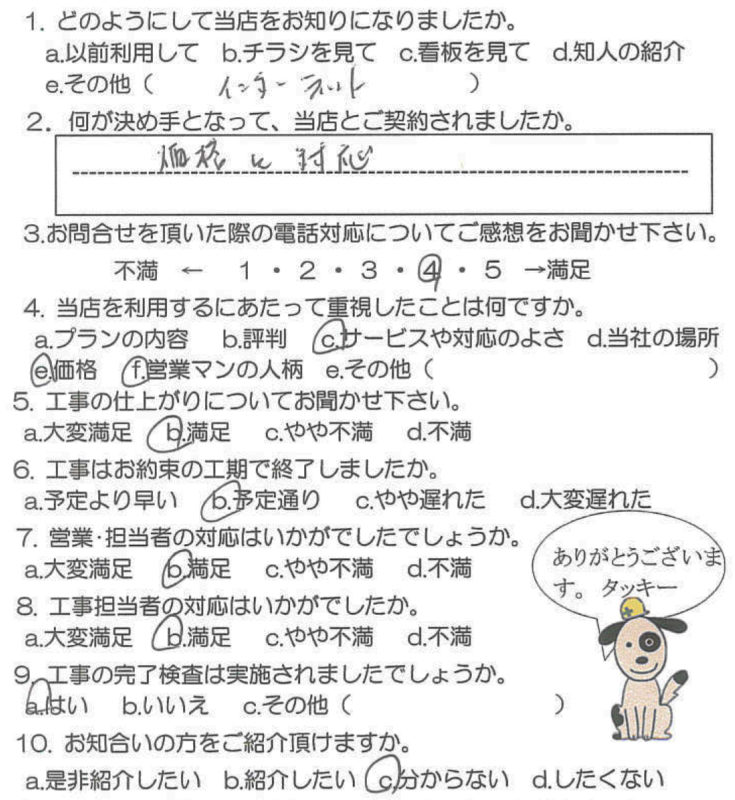 1. どのようにして当店をお知りになりましたか。
a.以前利用して b.チラシを見て c.看板を見て d.知人の紹介
e.その他（ インターネット ）
2. 何が決め手となって、当店とご契約されましたか。
価格と対応
3.お問合せを頂いた際の電話対応についてご感想をお聞かせ下さい。
不満 ← 1・2・3・4・5 →満足
4. 当店を利用するにあたって重視したことは何ですか。
a.プランの内容 b.評判 c.サービスや対応のよさ d.当社の場所
e.価格 f.営業マンの人柄 e.その他（ ）
5. 工事の仕上がりについてお聞かせ下さい。
a.大変満足 b.満足 c.やや不満 d.不満
6. 工事はお約束の工期で終了しましたか。
a.予定より早い b.予定通り c.やや遅れた d.大変遅れた
7. 営業・担当者の対応はいかがでしたでしょうか。
a.大変満足 b.満足 c.やや不満 d.不満
8. 工事担当者の対応はいかがでしたか。
a.大変満足 b.満足 c.やや不満 d.不満
ありがとうございま
す。 タッキー
9. 工事の完了検査は実施されましたでしょうか。
a.はい b.いいえ c.その他（ ）
10. お知合いの方をご紹介頂けますか。
a.是非紹介したい b.紹介したい c.分からない d.したくない